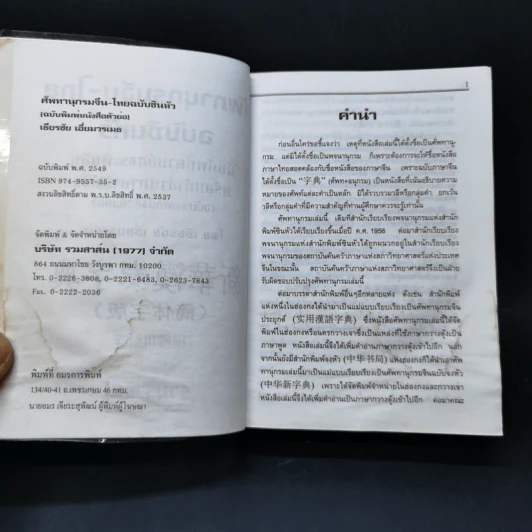 ศัพทานุกรมจีน-ไทยฉบับซินหัว
(ฉบับพิมพ์หนังสือตัวย่อ)
เธียรชัย เอี่ยมวรเมธ
ฉบับพิมพ์ พ.ศ. 2549
ISBN 974-9557-35-2
สงวนลิขสิทธิ์ตาม พ.ร.บ.ลิขสิทธิ์ พ.ศ. 2537
จัดพิมพ์ & จัดจำหน่ายโดย
บริษัท รวมสาส์น (1977) จำกัด
864 ถนนมหาไชย วังบูรพา กทม. 10200
โทร. 0-2226-3808, 0-2221-6483, 0-2623-7843
Fax. 0-2222-2036
พิมพ์ที่ อมรการพิมพ์
134/40-41 ถ.เพชรเกษม 46 กทม.
นายอมร เจียระสุพัฒน์ ผู้พิมพ์ผู้โฆษณา
1
คำนำ
ก่อนอื่นใคร่ขอชี้แจงว่า เหตุที่หนังสือเล่มนี้ได้ตั้งชื่อเป็นศัพทานุ-
กรม แต่มิได้ตั้งชื่อเป็นพจนานุกรม ก็เพราะต้องการจะให้ชื่อหนังสือ
ภาษาไทยสอดคล้องกับชื่อหนังสือของภาษาจีน เพราะฉบับภาษาจีน
ได้ตั้งชื่อเป็น "字典" (ศัพทานุกรม) เป็นหนังสือที่เน้นอธิบายความ
หมายของศัพท์แต่ละคำเป็นหลัก มิได้รวบรวมวลีหรือกลุ่มคำ ยกเว้น
วลีหรือกลุ่มคำที่มีความสำคัญที่ท่านผู้ศึกษาควรจะรู้เท่านั้น
ศัพทานุกรมเล่มนี้ เดิมทีสำนักเรียบเรียงพจนานุกรมแห่งสำนัก
พิมพ์ซินหัวได้เรียบเรียงขึ้นเมื่อปี ค.ศ. 1956 ต่อมาสำนักเรียบเรียง
พจนานุกรมแห่งสำนักพิมพ์ซินหัวได้ถูกผนวกอยู่ในสำนักเรียบเรียง
พจนานุกรมของสถาบันค้นคว้าภาษาแห่งสภาวิทยาศาสตร์แห่งประเทศ
จีนในฉะนั้น สถาบันค้นคว้าภาษาแห่งสภาวิทยาศาสตร์จึงเป็นฝ่าย
รับผิดชอบปรับปรุงศัพทานุกรมเล่มนี้
ต่อมาบรรดาสำนักพิมพ์อื่นๆอีกหลายแห่ง ดังเช่น สำนักพิมพ์
แห่งหนึ่งในฮ่องกงได้นำมาเป็นแม่แบบเรียบเรียงเป็นศัพทานุกรมจีน
ประยุกต์ (实用漢語字典) ซึ่งหนังสือศัพทานุกรมเล่มนี้ได้จัด
พิมพ์ในฮ่องกงหรือนครกวางเจาซึ่งเป็นแหล่งที่ใช้ภาษากวางตุ้งเป็น
ภาษาพูด หนังสือเล่มนี้จึงได้เพิ่มคำอ่านเป็นภาษากวางตุ้งเข้าไปอีก นอก
จากนั้นยังมีสำนักพิมพ์จงหัว (中华书局) แห่งฮ่องกงก็ได้นำเอาศัพ
ทานุกรมเล่มนี้มาเป็นแม่แบบเรียบเรียงเป็นศัพทานุกรมจีนฉบับจงหัว
(中华新字典) เพราะได้จัดพิมพ์จำหน่ายในฮ่องกงและกวางเจา
หนังสือเล่มนี้จึงได้เพิ่มคำอ่านเป็นภาษากวางตุ้งเข้าไปอีก ต่อมาคณะ